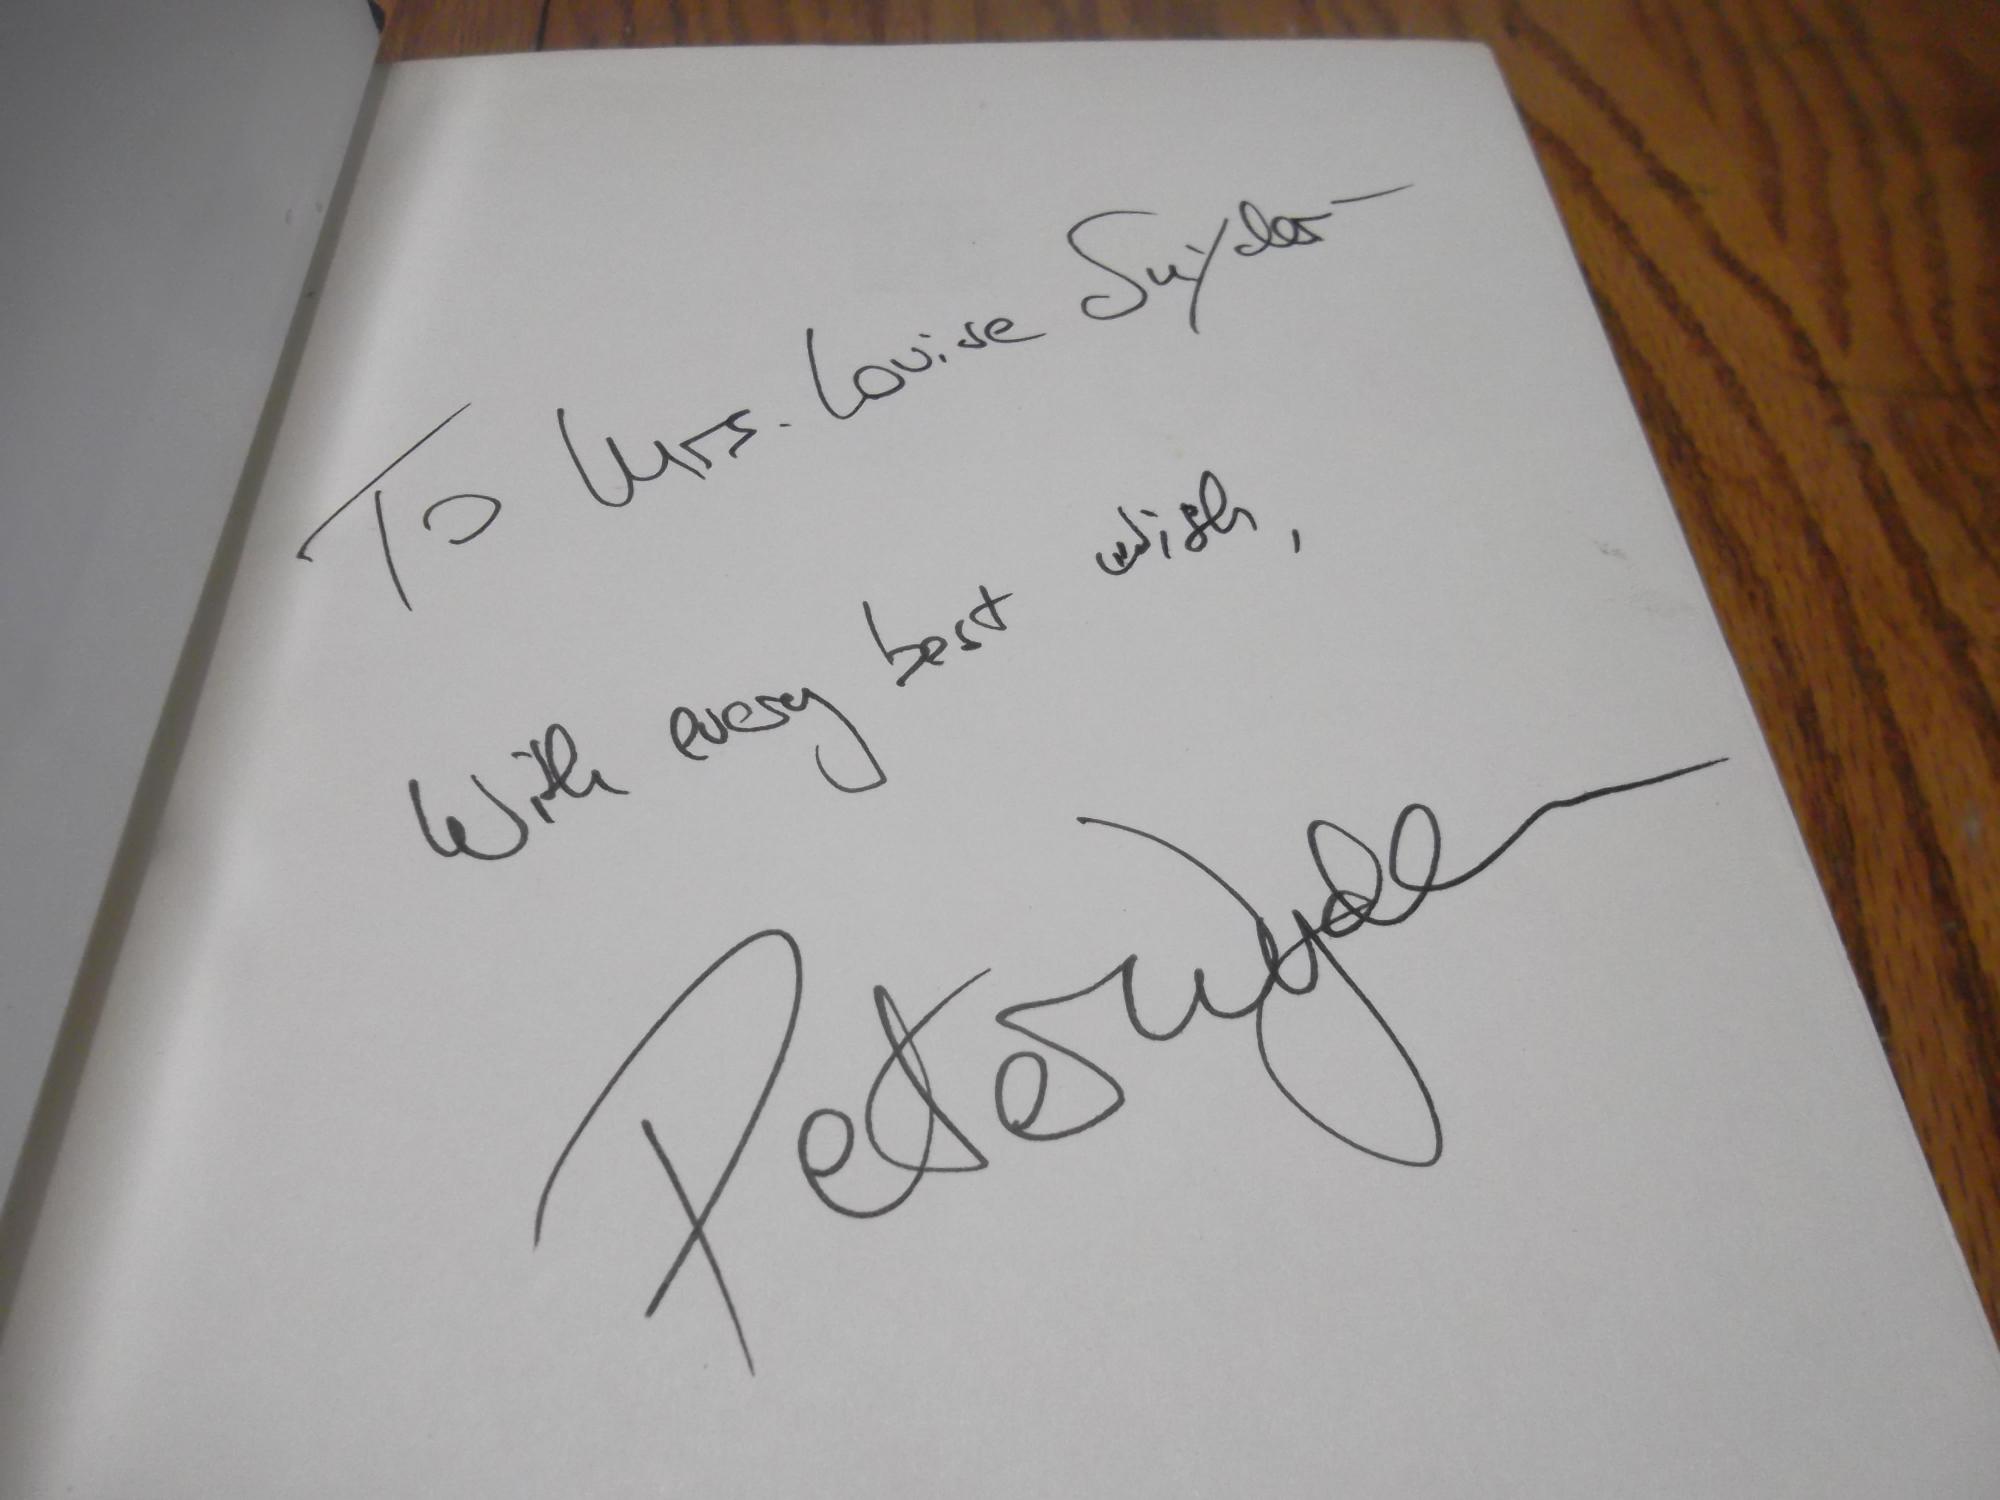 To Mrs. Louise Snyder
With every best wish,
Peter Wyden